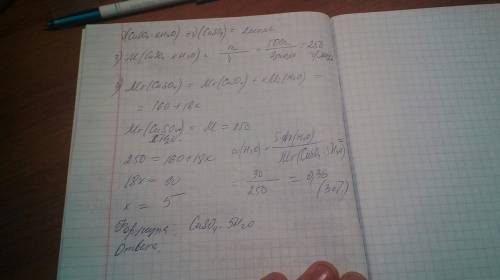 ν(CuSO₄·xH₂O) = ν(CuSO₄) = 2моль
3) M(CuSO₄·xH₂O) = m/ν = 500г/2моль = 250 г/моль
Mr(CuSO₄) = Mr(CuSO₄) + xMr(H₂O) =
= 160+18x
Mr(CuSO₄·xH₂O) = M = 250
250 = 160+18x
18x = 90
x = 5
ω(H₂O) = 5Mr(H₂O)/Mr(CuSO₄·5H₂O) =
= 90/250 = 0,36
Формула CuSO₄·5H₂O
Ответ: